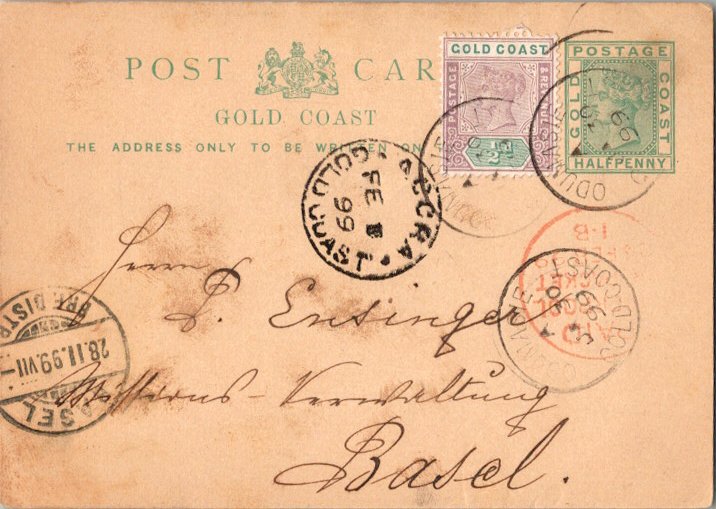 POST CAR
GOLD COAST
THE ADDRESS ONLY TO BE WRITTEN ON
GOLD COAST
POSTAGE
REVENUE
½D
POSTAGE
GOLD
COAST
HALFPENNY
ODUMASE
99
ACCRA
FE
99
GOLD COAST
GOLD COAST
99
Herrn
L. Ensinger
Missions-Verwaltung
Basel.
28.II.99.VII-
BASEL